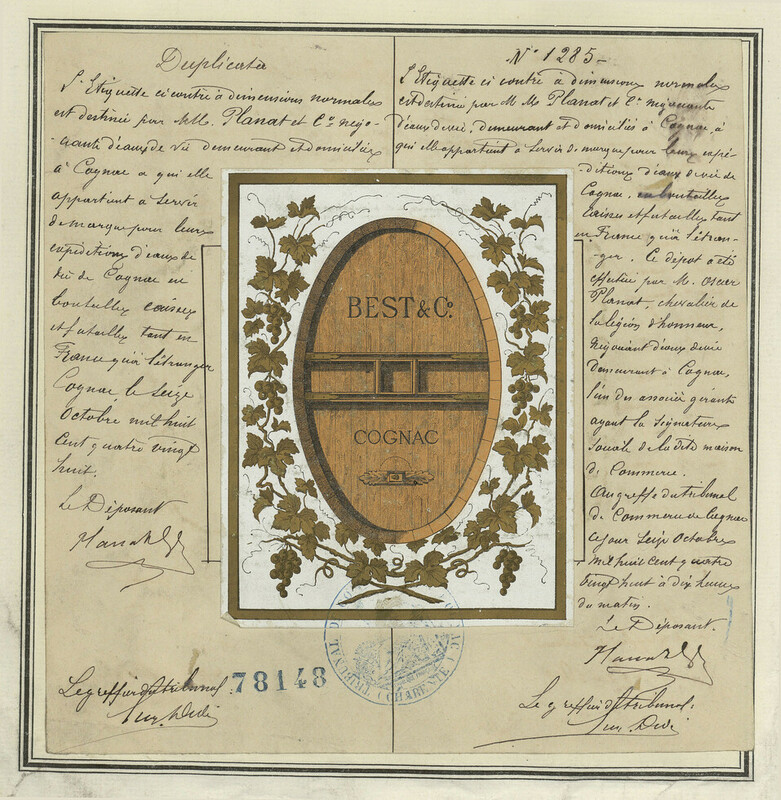 Duplicata
L'Etiquette ci contre à dimensions normales
est destinée par MM. Planat et Co négo-
ciants d'eaux de vie demeurant et domiciliés
à Cognac a qui elle
appartient à servir
de marque pour leurs
expéditions d'eaux de
vie de Cognac en
bouteilles caisses
et futailles tant en
France qu'à l'étranger
Cognac le seize
Octobre mil huit
cent quatre vingt
huit.
Le Déposant
Planat
Le greffier du tribunal:
N° 1285
L'Etiquette ci contre à dimensions normales
est destinée par M Mrs Planat et Cie négociants
d'eaux de vie, demeurant et domiciliés à Cognac à
qui elle appartient à servir de marque pour leurs expé-
ditions d'eaux de vie de
Cognac, en bouteilles
caisses et futailles tant
en France qu'à l'étran-
ger. Ce dépot a été
effectué par M. Oscar
Planat, chevalier de
la légion d'honneur,
Négociant d'eaux de vie
demeurant à Cognac,
l'un des associés gérants
ayant la signature
sociale de la dite maison
de Commerce.
Au greffe du tribunal
de Commerce de Cognac
ce jour seize Octobre
mil huit cent quatre
vingt huit à dix heures
du matin.
Le Déposant.
Planat
Le greffier du tribunal:
BEST & Co.
COGNAC
78148
TRIBUNAL DE COGNAC (CHARENTE)